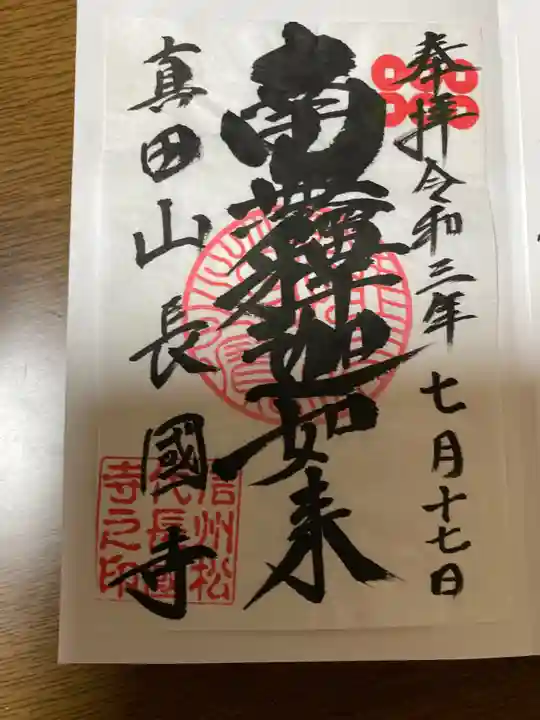 奉拝令和三年七月十七日
南無釋迦如来
真田山長國寺
信州松
代長國
寺之印